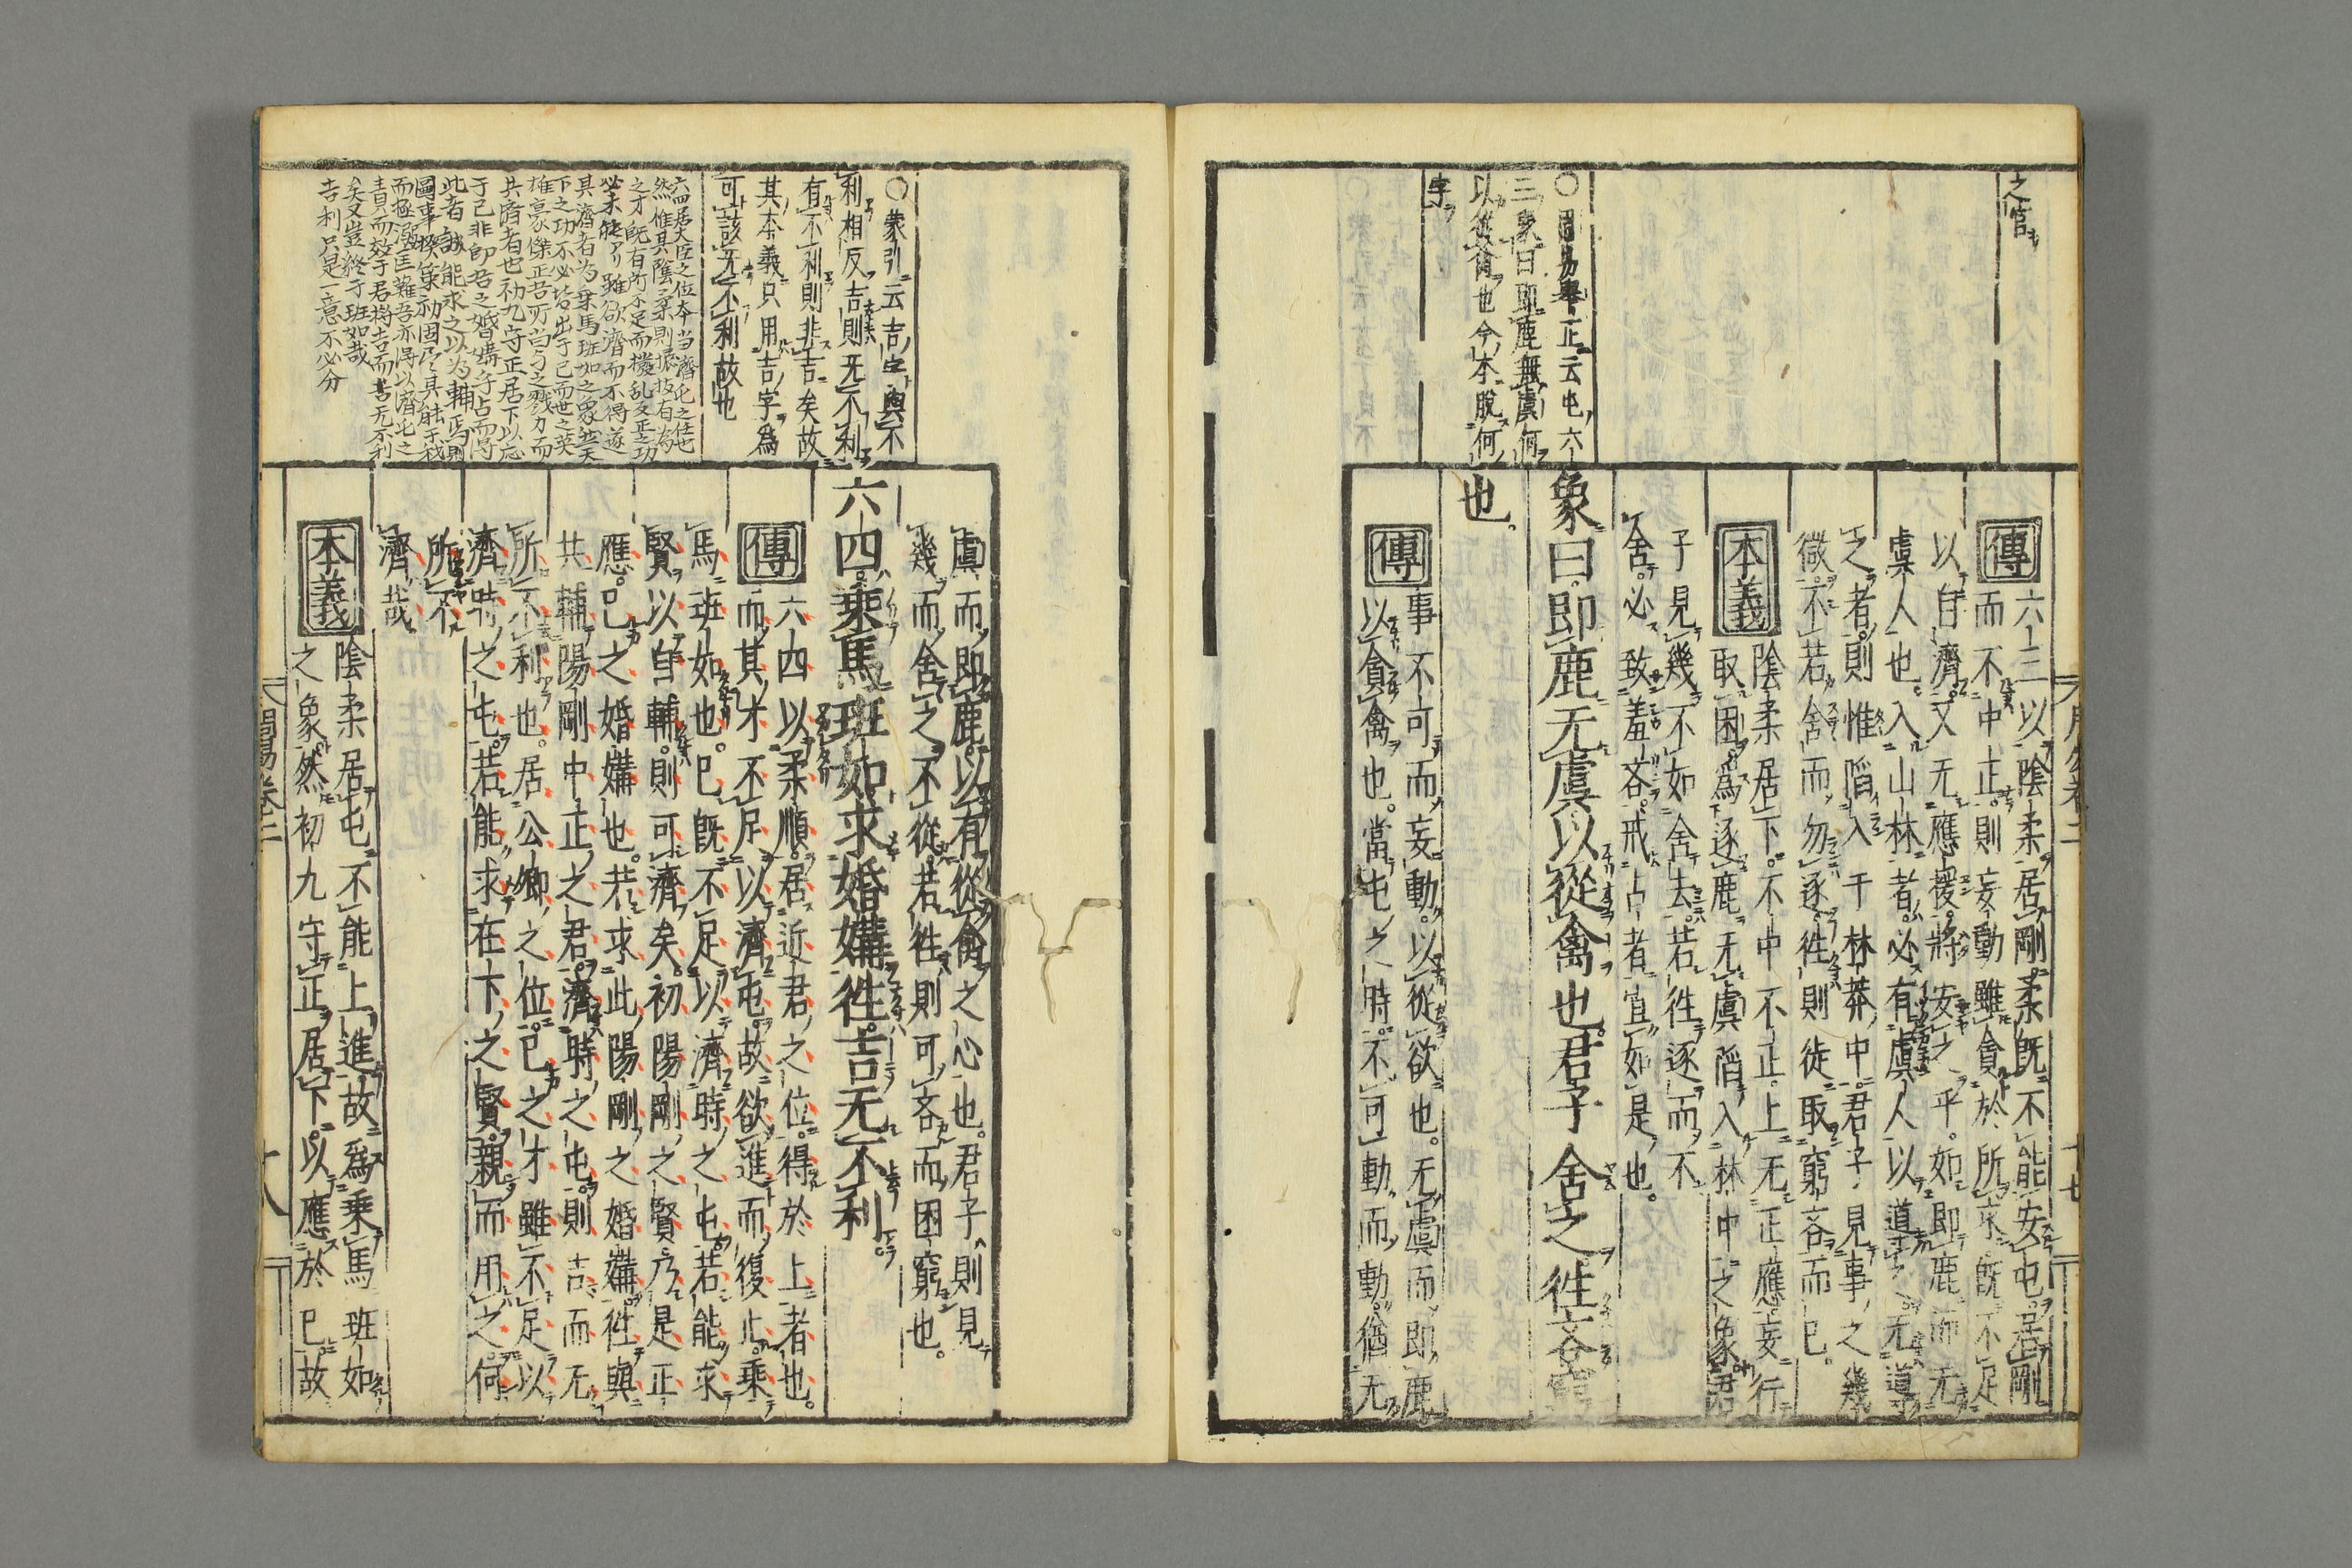 之官
傳
六三以陰柔居剛柔既不能安屯居剛
而不中正則妄動雖貪於所求既不足
以自濟又无應援將安之乎如即鹿而无
虞人也入山林者必有虞人以道之无導
之者則惟陷入于林莽中君子見事之幾
微不若舍而勿逐往則徒取窮吝而已
本義
陰柔居下不中不正上无正應妄行
取困爲逐鹿无虞陷入林中之象君
子見幾不如舍去若往逐而不
舍必致羞吝戒占者宜如是也
○周易舉正云屯六
三象曰即鹿無虞何
以從禽也今本脫何
字
象曰即鹿无虞以從禽也君子舍之往吝窮
也
傳
事不可而妄動以從欲也无虞而即鹿
以貪禽也當屯之時不可動而動猶无
周易卷二
十七
虞而即鹿以有從禽之心也君子則見
幾而舍之不從若往則可吝而困窮也
○蒙引云吉字與不
利相反吉則无不利
有不利則非吉矣故
其本義只用吉字爲
可該无不利故也
六四乘馬班如求婚媾往吉无不利
傳
六四以柔順居近君之位得於上者也
而其才不足以濟屯故欲進而復止乘
馬班如也已既不足以濟時之屯若能求
賢以自輔則可濟矣初陽剛之賢乃是正
應已之婚媾也若求此陽剛之婚媾往與
共輔陽剛中正之君濟時之屯則吉而无
所不利也居公卿之位已之才雖不足以
濟時之屯若能求在下之賢親而用之何
所不
濟哉
六四居大臣之位本当濟屯之任也
然惟其陰柔則撥抜有為
之才既有所不足而撥乱反正之功
必未能了雖欲濟而不得遂
其濟者为乘馬班如之象然天
下之功不必皆出于已而世之英
雄豪傑正吾所当与之戮力而
共濟者也初九守正居下以应
于已非即吾之婚媾乎占而得
此者誠能求之以为輔焉則
圖事揆策初固尽其能于我
而極溺匡難吾亦得以濟屯之
責而效于君将吉而无不利
矣又豈終于班如哉
吉利只是一意不必分
本義
陰柔居屯不能上進故爲乘馬班如
之象然初九守正居下以應於已故
周易卷二
十八